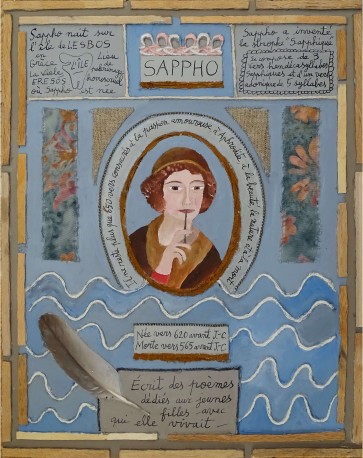 Sappho naît sur
l'île de LESBOS
Grèce
L'ÎLE
Lieu
de
pèlerinage
la ville
ERESOS
honorait
où Sappho est née
SAPPHO
Sappho a inventé
la strophe Sapphique
Se compose de 3
vers hendécasyllabes
Saphiques et d'un vers
adonique de 5 syllabes
Il ne reste plus que 650 vers consacrés à la passion amoureuse à Aphrodite, à la beauté, la nature et à la mort
Née vers 620 avant J-C
Morte vers 565 avant J-C
Écrit des poèmes
dédiés aux jeunes
filles avec
qui elle vivait